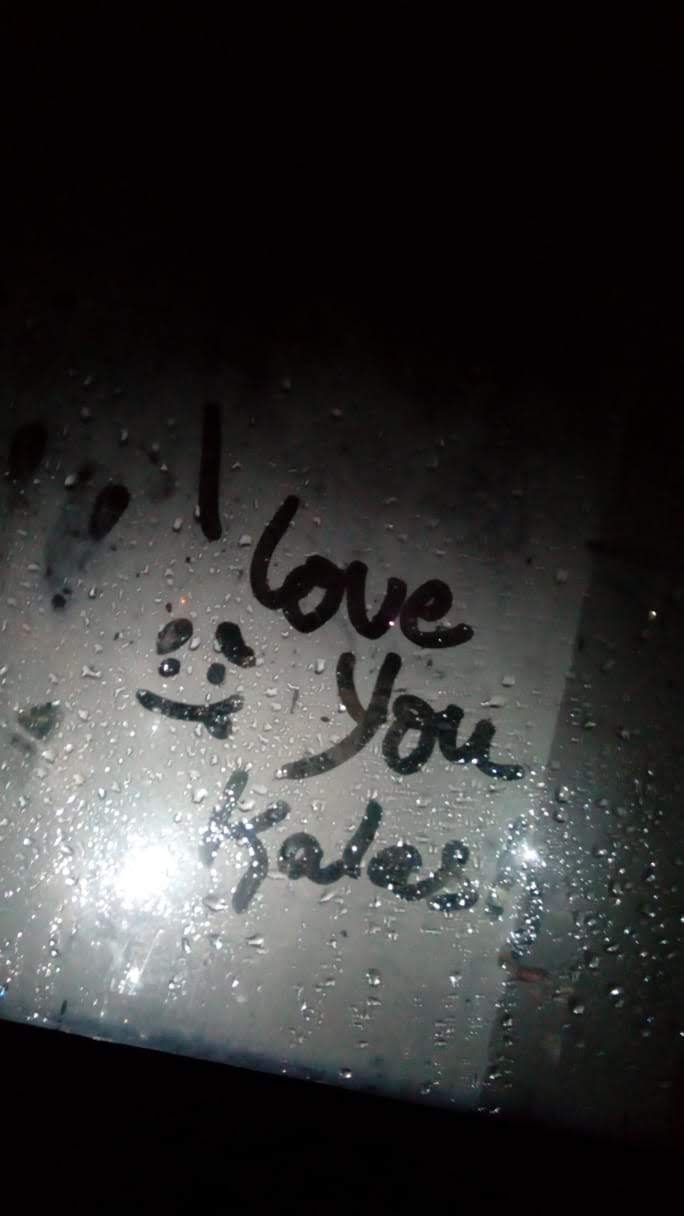 I
love
you
Kalash